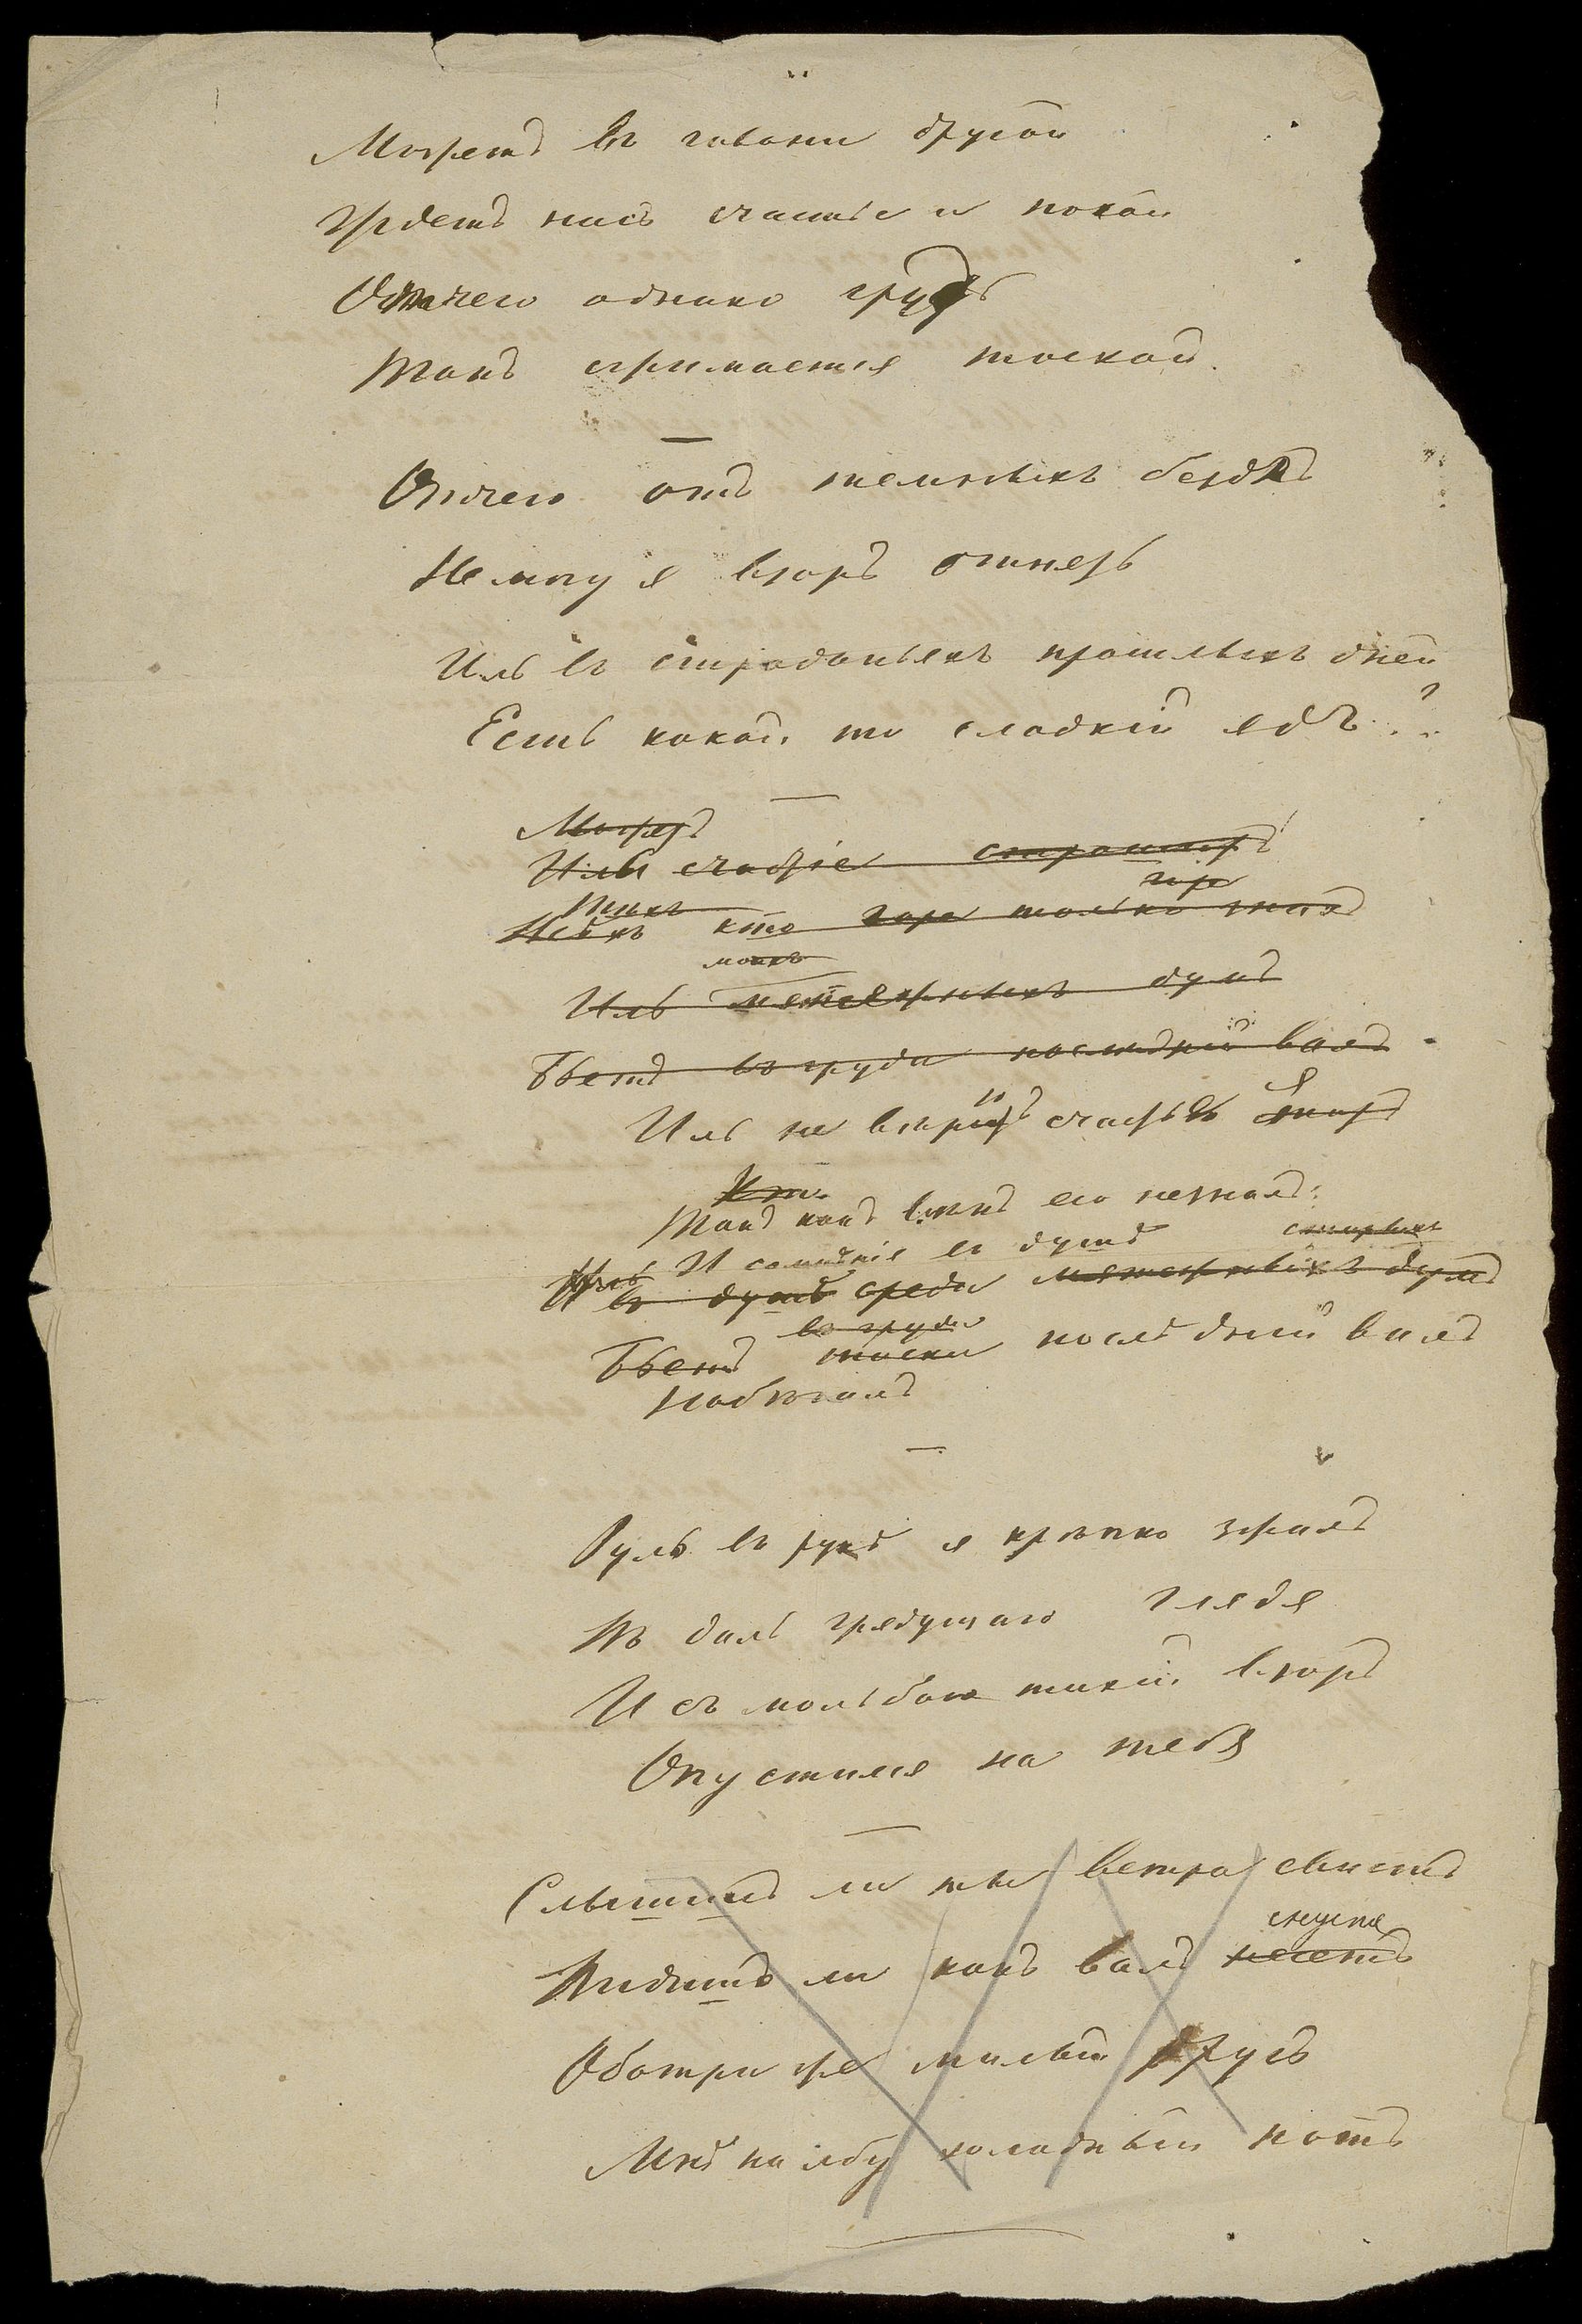 Можетъ въ гавани другой
Ждетъ насъ счастье и покой
Отчего однако грудь
Такъ сжимается тоской.
Отчего отъ темныхъ безднъ
Не могу я взоръ отнять
Иль въ страданьяхъ прошлыхъ дней
Есть какой то сладкій ядъ?..
Можетъ
Иль счастіе страшитъ
горе
Тѣхъ
Всѣхъ кто горе только зналъ
моихъ
Иль мятежныхъ думъ
Бьетъ въ груди послѣдній валъ
Иль не вѣрю я счастью
Кто
Такъ какъ вѣкъ его не зналъ
И сомнѣнія въ душѣ старыхъ
Иль въ душѣ среди мятежныхъ думъ
въ груди
Бьетъ тоски послѣдній валъ
Набѣгалъ
Руль въ рукѣ я крѣпко сжалъ
Въ даль грядущаго глядя
И съ мольбою тихій взоръ
Опустился на тебя
Слышишь ли ты ветра свистъ
Видишь ли какъ валъ несетъ
Оботри же милый другъ
Мнѣ на лбу холодный потъ